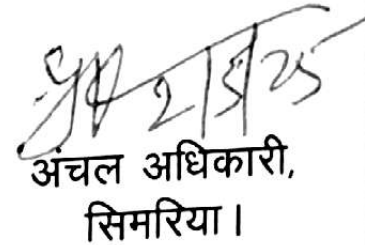 2/5/25
अंचल अधिकारी,
सिमरिया।